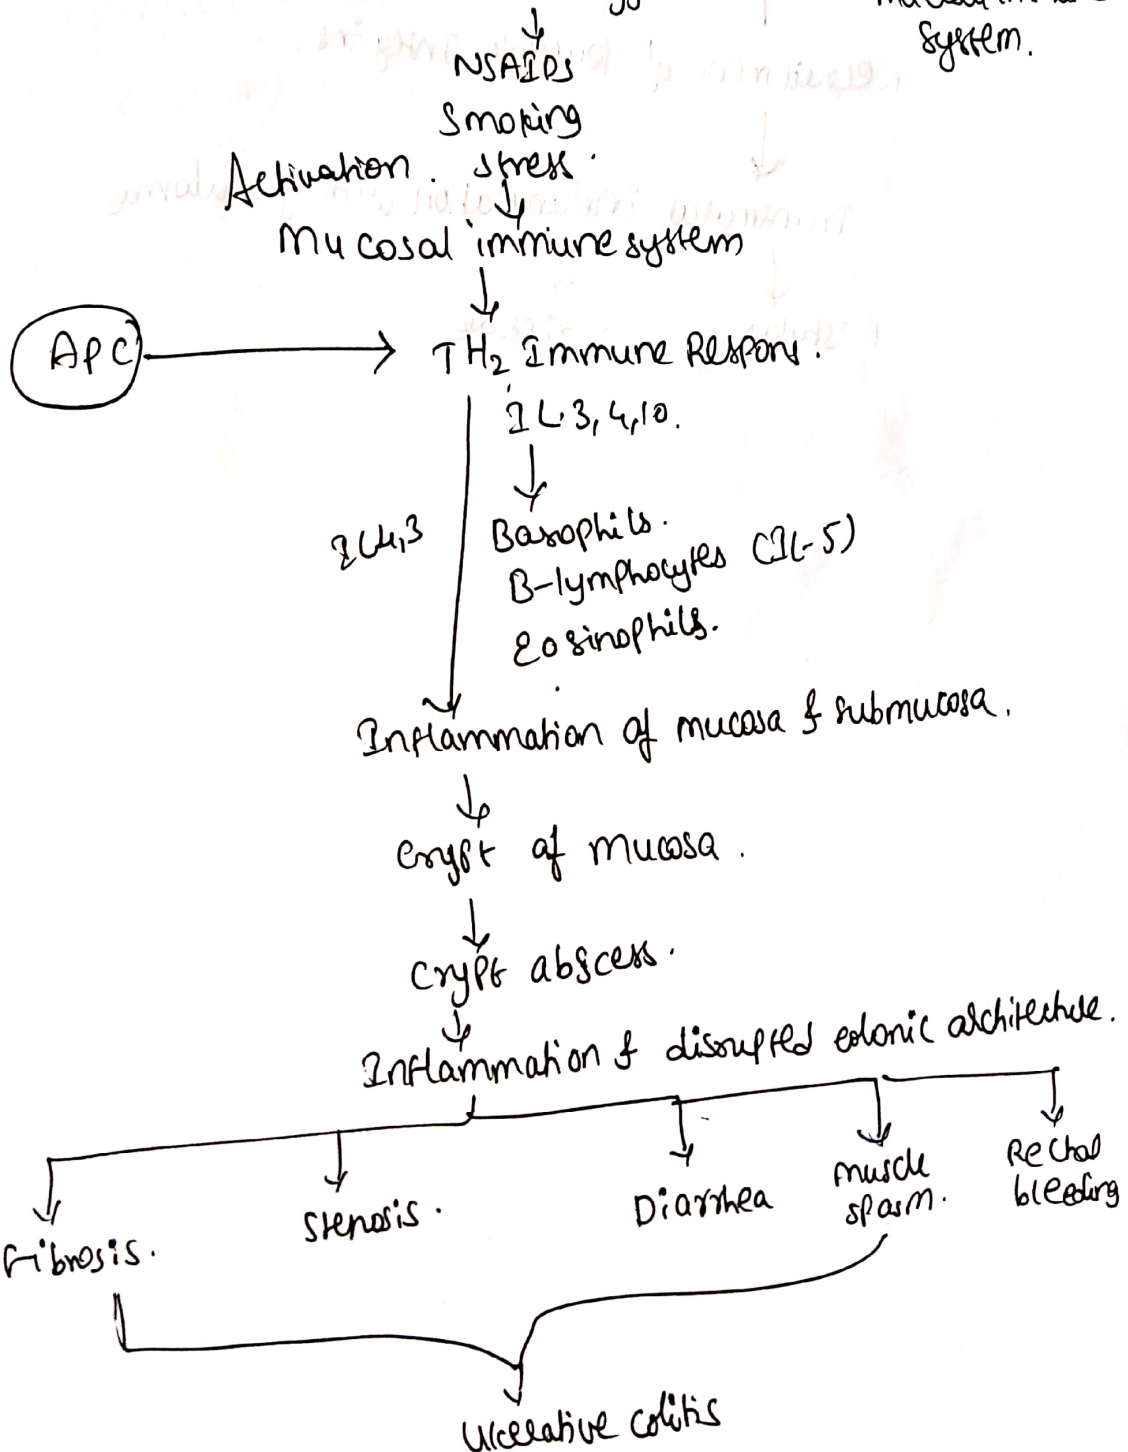 system.
NSAIDs
Smoking
Activation. stress.
Mucosal immune system
APC TH2 Immune Respons.
IL 3, 4, 10.
IL4,3
Basophils.
B-lymphocytes (IL-5)
Eosinophils.
Inflammation of mucosa & submucosa.
Crypt of mucosa.
Crypt abscess.
Inflammation & disrupted colonic architecture.
Fibrosis. Stenosis. Diarrhea muscle spasm. Rectal bleeding
Ulcerative colitis